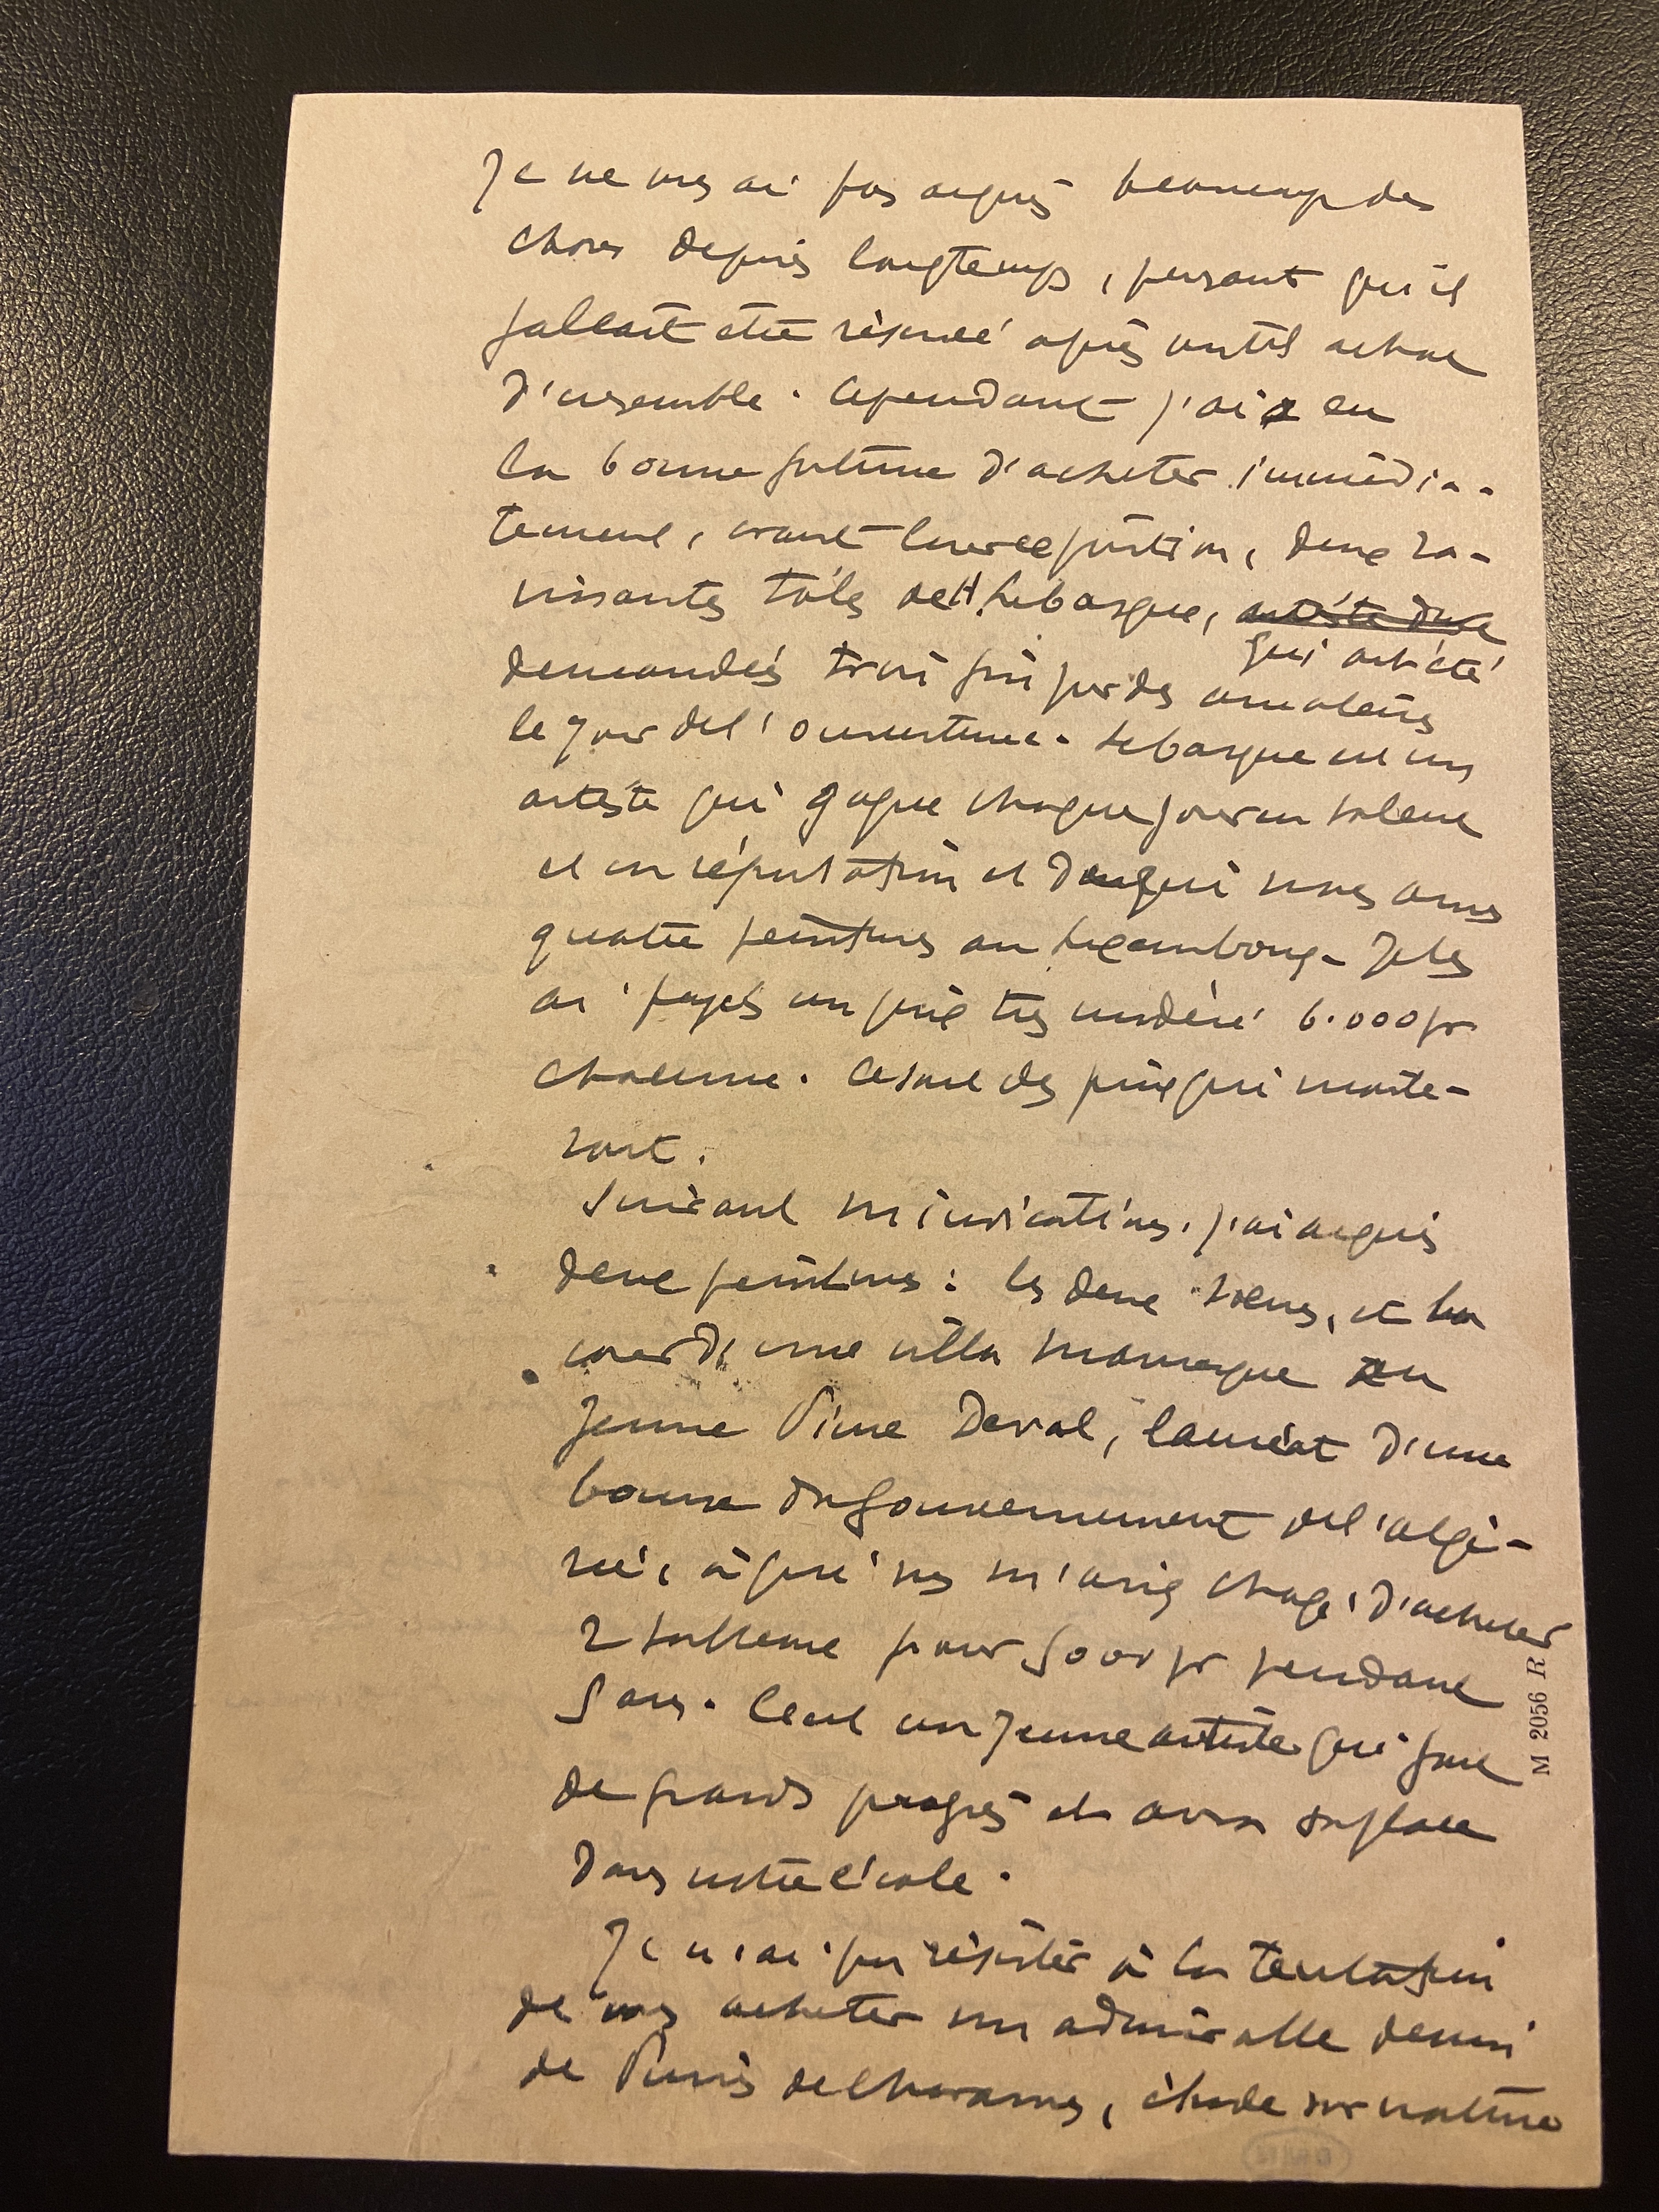 Je ne vous ai pas acquis beaucoup de
choses depuis longtemps, pensant qu'il
fallait être réservé après votre achat
d'ensemble. Cependant j'ai eu
la bonne fortune d'acheter immédia-
tement, avant leur exposition, deux ra-
vissantes toiles de H. Lebasque,
qui ont été
demandées trois fois par des amateurs
le jour de l'ouverture. Lebasque est un
artiste qui gagne chaque jour en talent
et en réputation et de qui nous avons
quatre peintures au Luxembourg. Je les
ai payés un prix très modéré 6.000 fr
chacune. Ce sont des prix qui monte-
ront.
Suivant vos indications, j'ai acquis
deux peintures : les deux soeurs, et la
cour d'une villa mauresque du
jeune Pierre Deval, lauréat d'une
bourse du gouvernement de l'Algé-
rie, à qui vous m'aviez chargé d'acheter
2 tableaux pour 5000 fr pendant
5 ans. C'est un jeune artiste qui fait
de grands progrès et aura sa place
dans notre école.
Je n'ai pu résister à la tentation
de vous acheter un admirable dessin
de Puvis de Chavannes, étude sur nature
M 2056 R